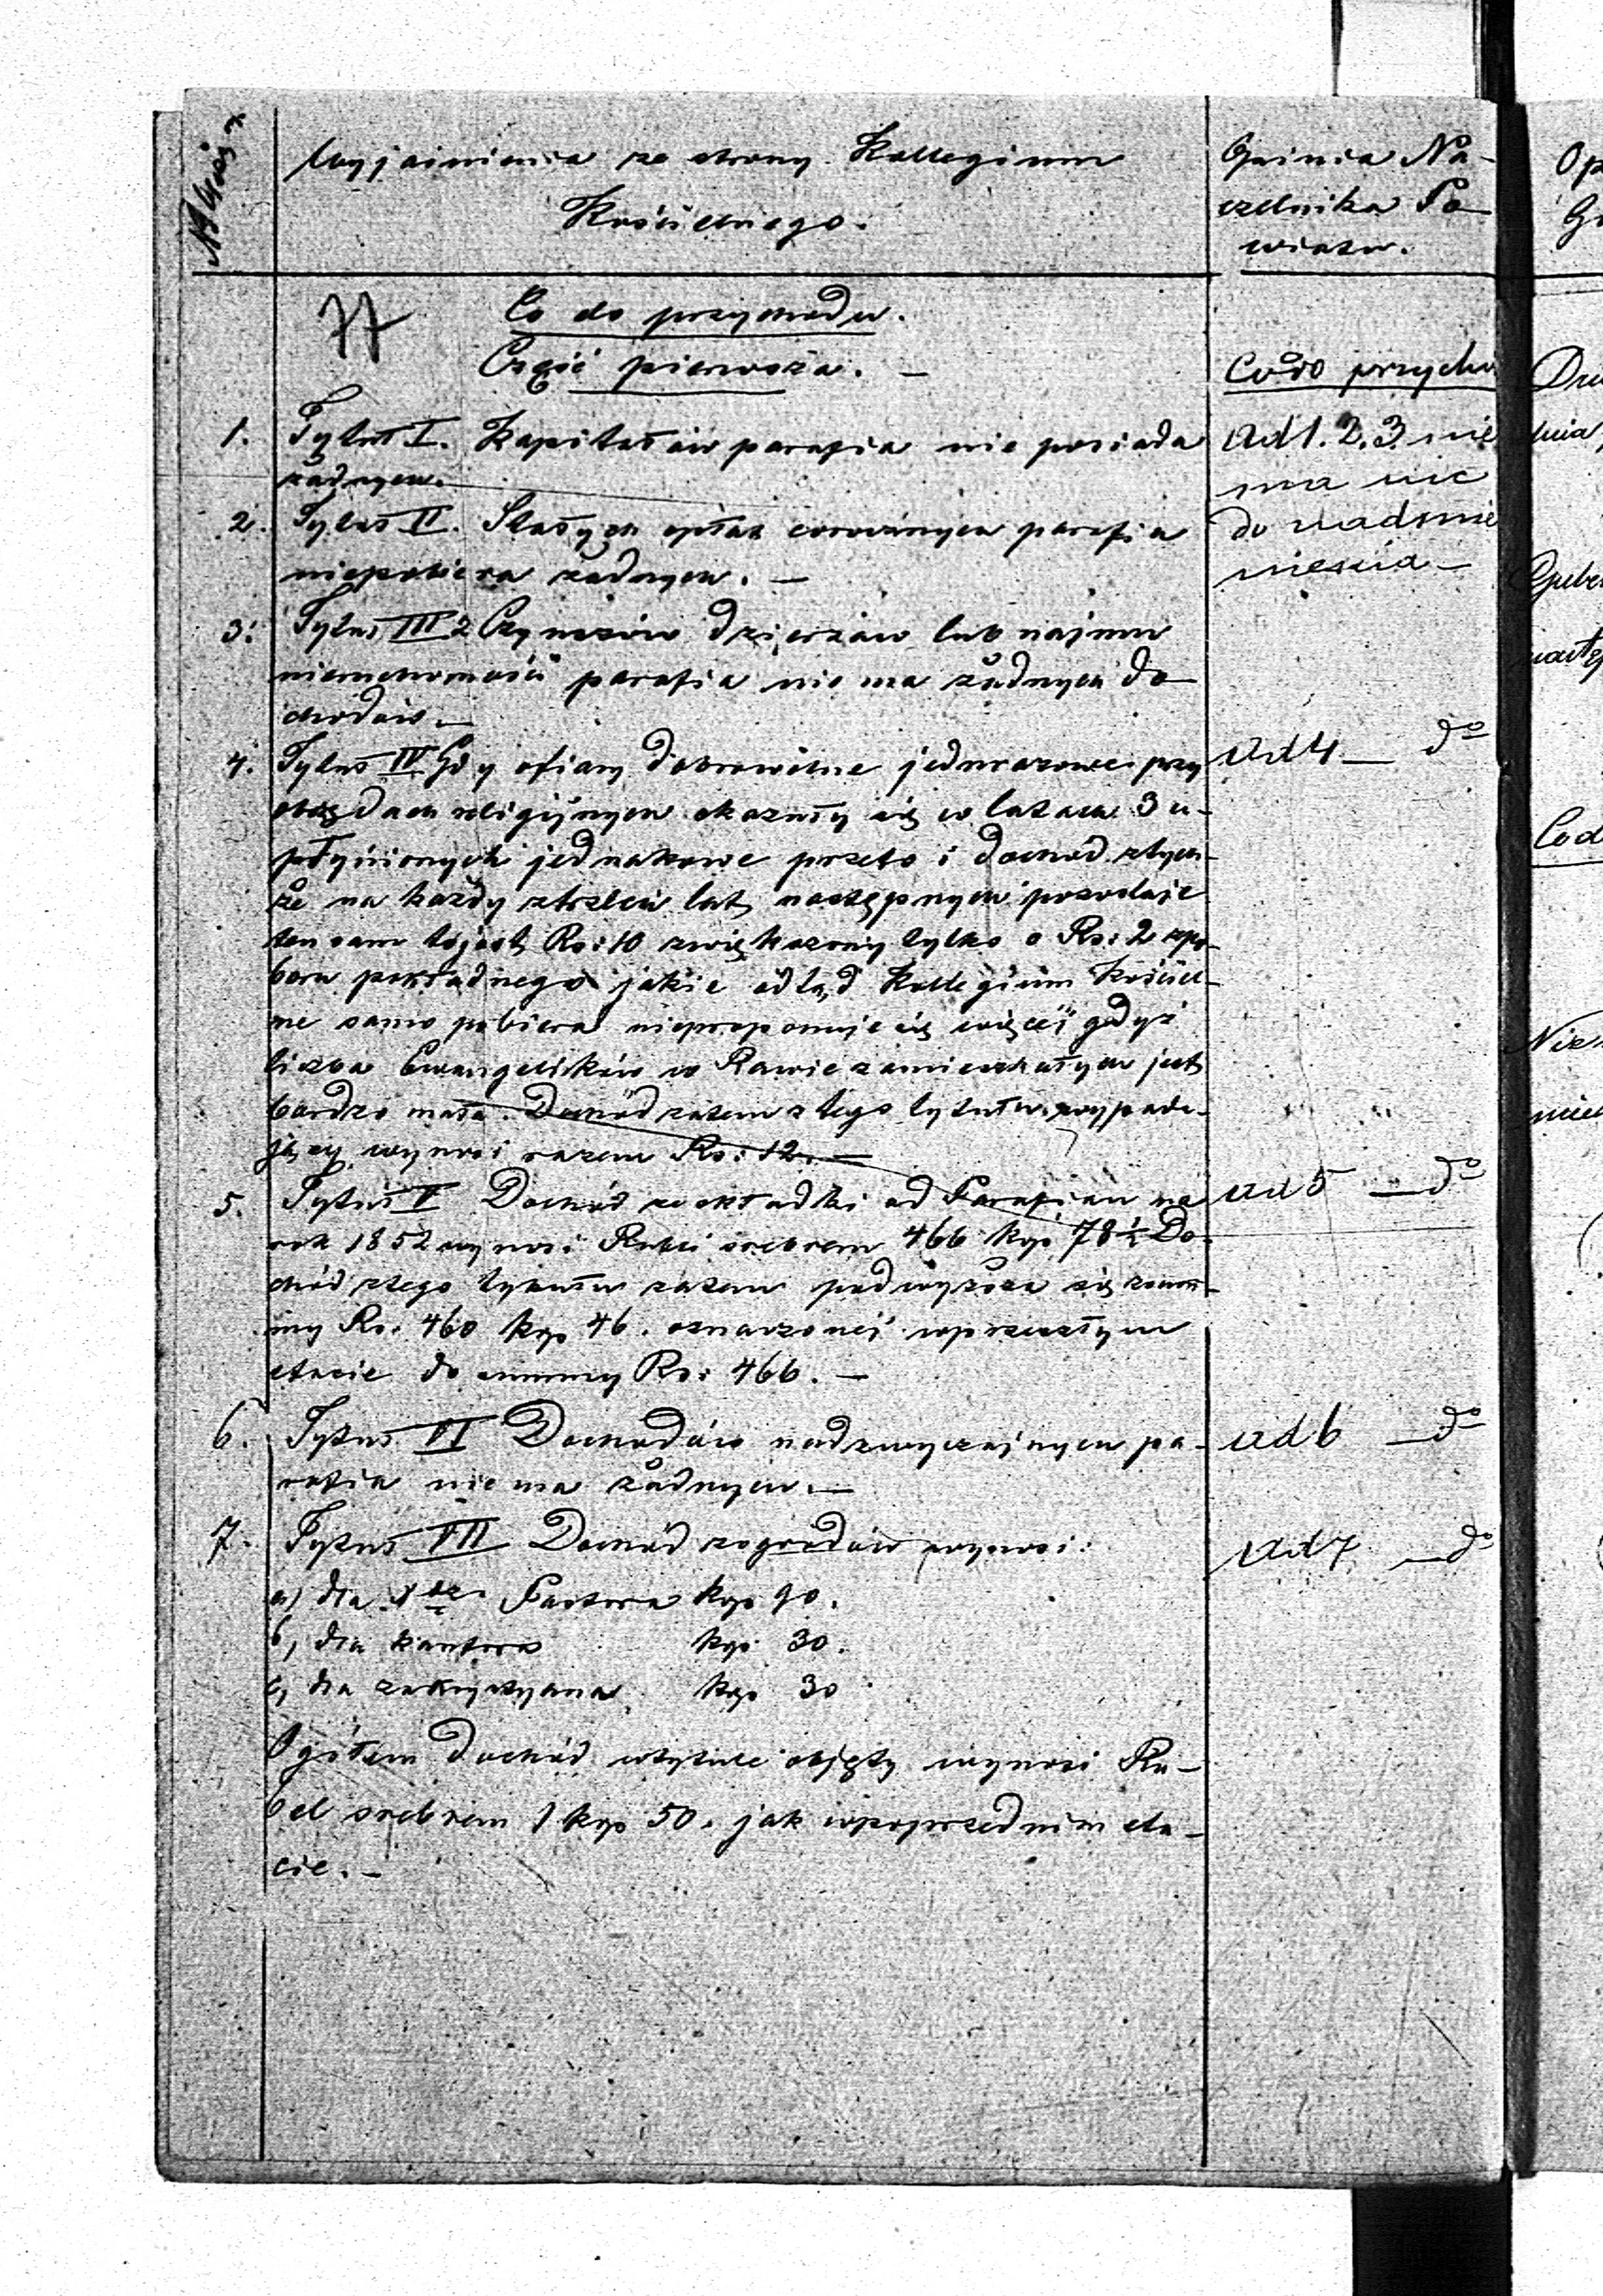 Wyjaśnienia ze strony Kollegium
Kościelnego.
Opinia Na-
czelnika Po-
wiatu.
77
Co do przychodu.
Część pierwsza. —
1. Tytuł I. Kapitałów parafia nie posiada
żadnych. —
2. Tytuł II. Stałych opłat corocznych parafia
niepobiera żadnych. —
3. Tytuł III Z Czynszów dzierżaw lub najmu
nieruchomości parafia nie ma żadnych do-
chodów. —
4. Tytuł IV Gdy ofiary dobrowolne jednorazowe przy
obrzędach religijnych okazały się w latach 3 u-
płynionych jednakowe przeto i dochód ztych-
że na każdy ztrzech lat następnych pozostaje
ten sam to jest Rs: 10 zwiększony tylko o Rs: 2 zpo-
boru pokładnego jakie odtąd Kollegium Kościel-
ne samo pobiera nieproponuje się więcéj gdyż
liczba Ewangelików w Rawie zamieszkałych jest
bardzo mała. Dochód zatem z tego tytułu wypada-
jący wynosi razem Rs: 12. —
5. Tytuł V Dochód ze składki od Parafian na
rok 1852 wynosi Rubli srebrem 466 kop 78 ½ Do-
chód ztego tytułu zatem podwyższa się z sum-
my Rs. 460 kop 46. oznaczonéj wprzeszłym
etacie do summy Rs: 466. —
6. Tytuł VI Dochodów nadzwyczajnych pa-
rafia nie ma żadnych. —
7. Tytuł VII Dochód zogrodów wynosi:
a) dla Pastora kop 90.
b) dla kantora kop 30.
c) dla zakrystyana kop 30
Ogółem dochód wtytule objęty wynosi Ru-
bel srebrem 1 kop 50. jak wpoprzednim eta-
cie. —
Co do przycho
ad 1. 2. 3. nie
ma nic
do nadmie
nienia —
ad 4 — do
ad 5 — do
ad 6 — do
ad 7 — do
Op